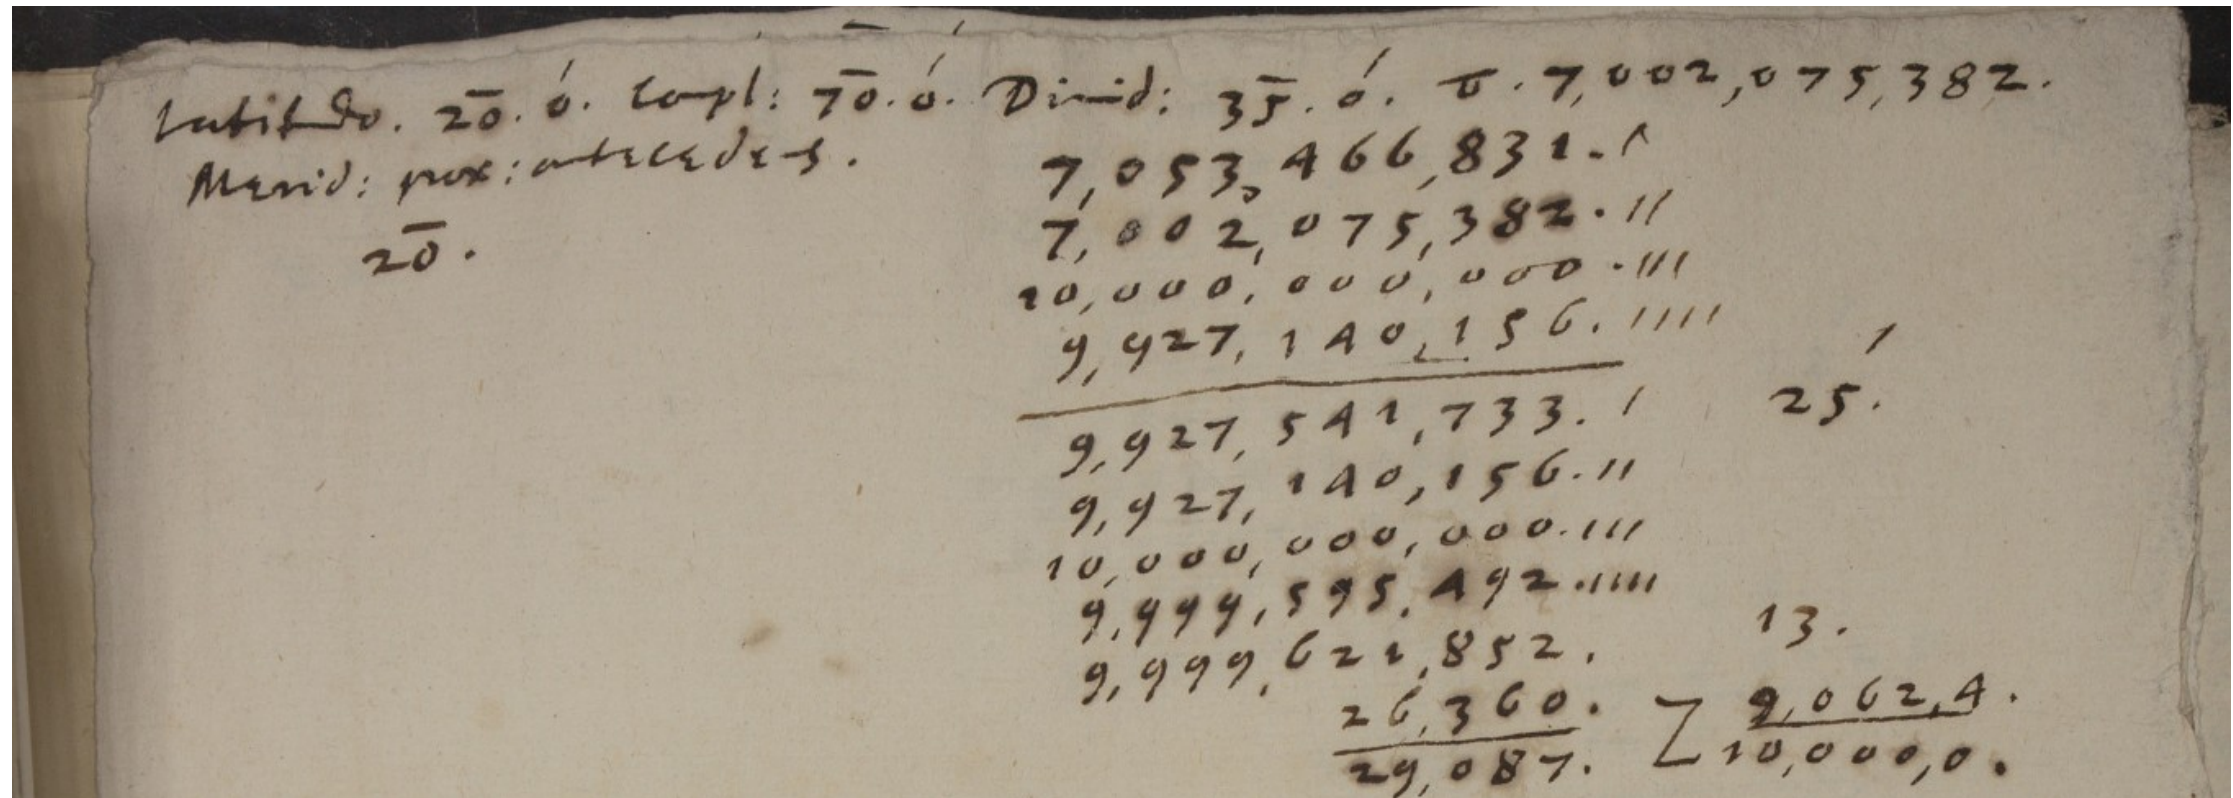 Latitudo. 20̄. 0́. Compl: 70̄. 0́. Divid: 35̄. 0́. 7,002,075,382.
Merid: prox: antecedens. 7,053,466,831. ′
20̄. 7,002,075,382. ′′
10,000,000,000. ′′′
9,927,140,156. ′′′′
9,927,541,733. ′ 25.́
9,927,140,156. ′′
10,000,000,000. ′′′
9,999,595,492. ′′′′
9,999,621,852. 13.
26,360. 9,062,4.
29,087. 10,000,0.